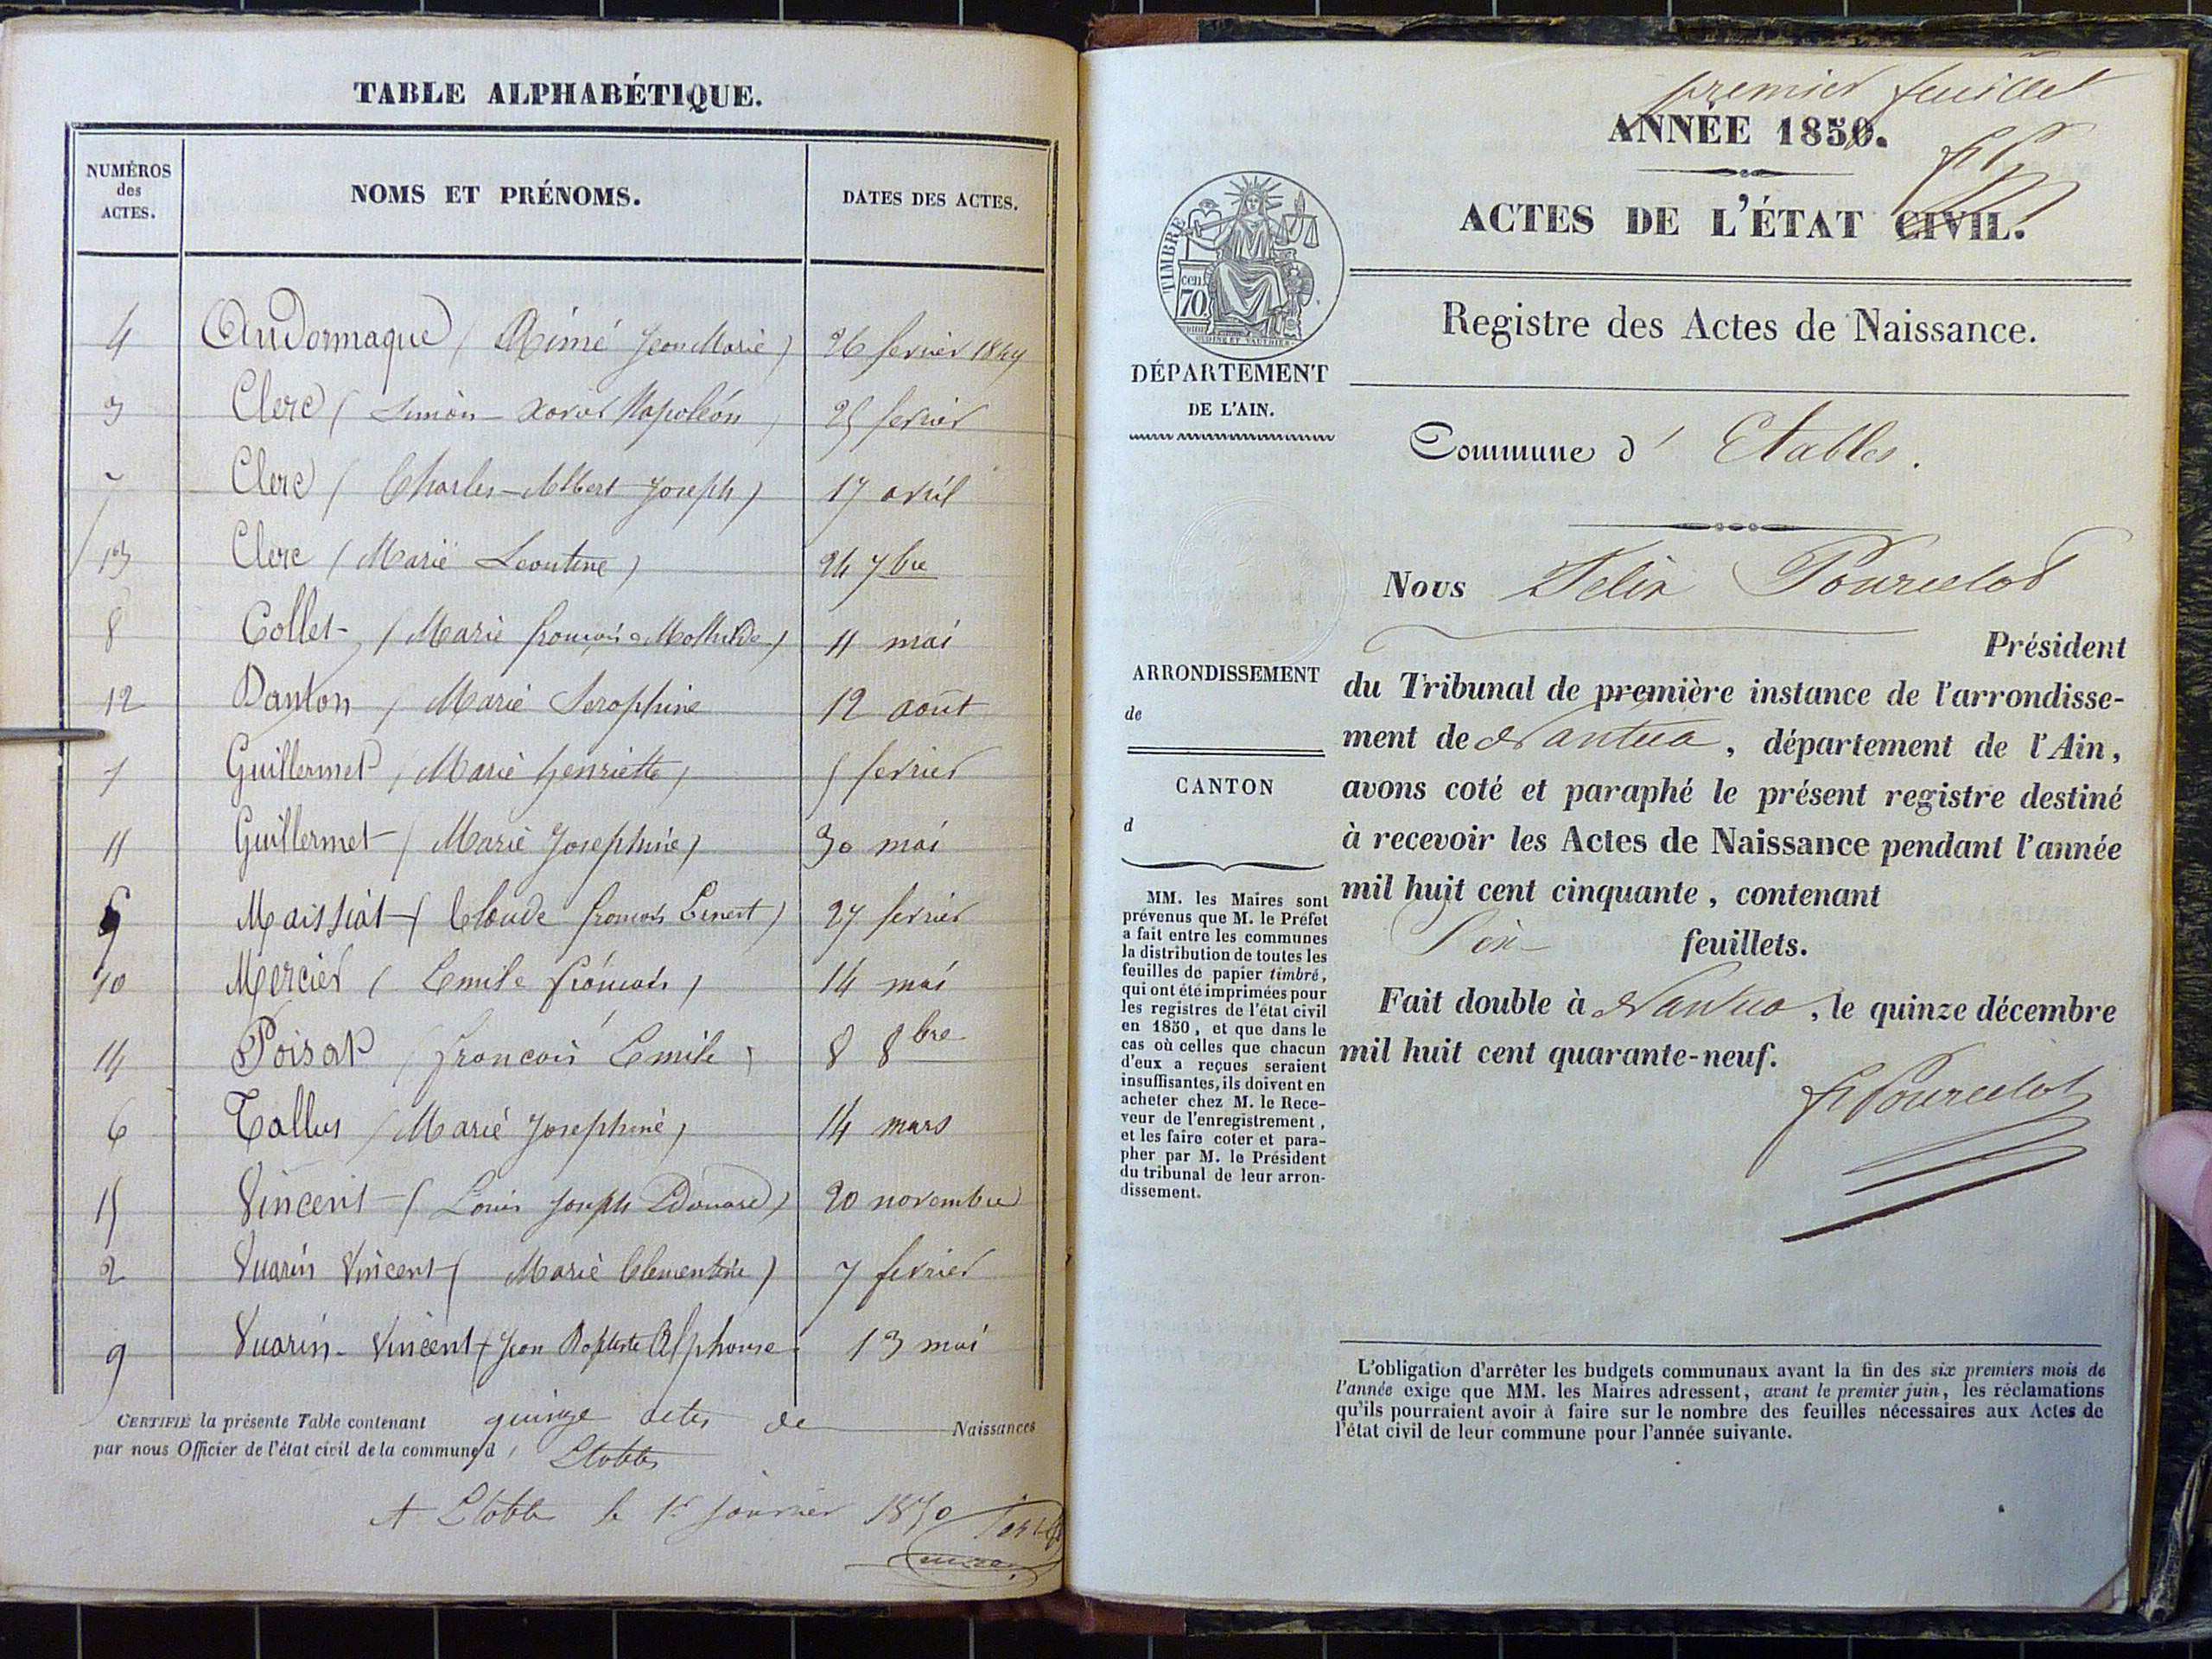 TABLE ALPHABÉTIQUE.
NUMÉROS des ACTES. NOMS ET PRÉNOMS. DATES DES ACTES.
4 Andormaque (Aimé Jean Marie) 26 fevrier 1849
3 Clerc (Simon-Xavier Napoléon 25 fevrier
7 Clerc (Charles-Albert Joseph) 17 avril
13 Clerc (Marie Leontine) 24 7bre
8 Collet (Marie françoise Mathilde) 11 mai
12 Danton (Marie Seraphine 12 août
1 Guillermet (Marie henriette) 5 fevrier
11 Guillermet (Marie Josephine) 30 mai
5 Maissiat (Claude françois) 27 fevrier
10 Mercier (Emile françois) 14 mai
14 Poisat (françois Emile) 8 8bre
6 Tallus (Marie Josephine) 14 mars
15 Vincent (Louis Joseph Edouard) 20 novembre
2 Vuarin Vincent (Marie Clementine) 7 fevrier
9 Vuarin-Vincent (Jean Baptiste Alphonse 13 mai
CERTIFIÉ la présente Table contenant quinze actes de Naissances
par nous Officier de l'état civil de la commune d' Etables
A Etables le 1er janvier 1850
premier feuillet
ANNÉE 1850.
ACTES DE L'ÉTAT CIVIL.
TIMBRE
cent
70
Registre des Actes de Naissance.
DÉPARTEMENT
DE L'AIN.
Commune d' Etables.
Nous Felix Pourcelot
Président
ARRONDISSEMENT
de
CANTON
d
du Tribunal de première instance de l'arrondisse-
ment de Nantua, département de l'Ain,
avons coté et paraphé le présent registre destiné
à recevoir les Actes de Naissance pendant l'année
mil huit cent cinquante, contenant
Six feuillets.
Fait double à Nantua, le quinze décembre
mil huit cent quarante-neuf.
f Pourcelot
MM. les Maires sont
prévenus que M. le Préfet
a fait entre les communes
la distribution de toutes les
feuilles de papier timbré,
qui ont été imprimées pour
les registres de l'état civil
en 1850, et que dans le
cas où celles que chacun
d'eux a reçues seraient
insuffisantes, ils doivent en
acheter chez M. le Rece-
veur de l'enregistrement,
et les faire coter et para-
pher par M. le Président
du tribunal de leur arron-
dissement.
L'obligation d'arrêter les budgets communaux avant la fin des six premiers mois de
l'année exige que MM. les Maires adressent, avant le premier juin, les réclamations
qu'ils pourraient avoir à faire sur le nombre des feuilles nécessaires aux Actes de
l'état civil de leur commune pour l'année suivante.